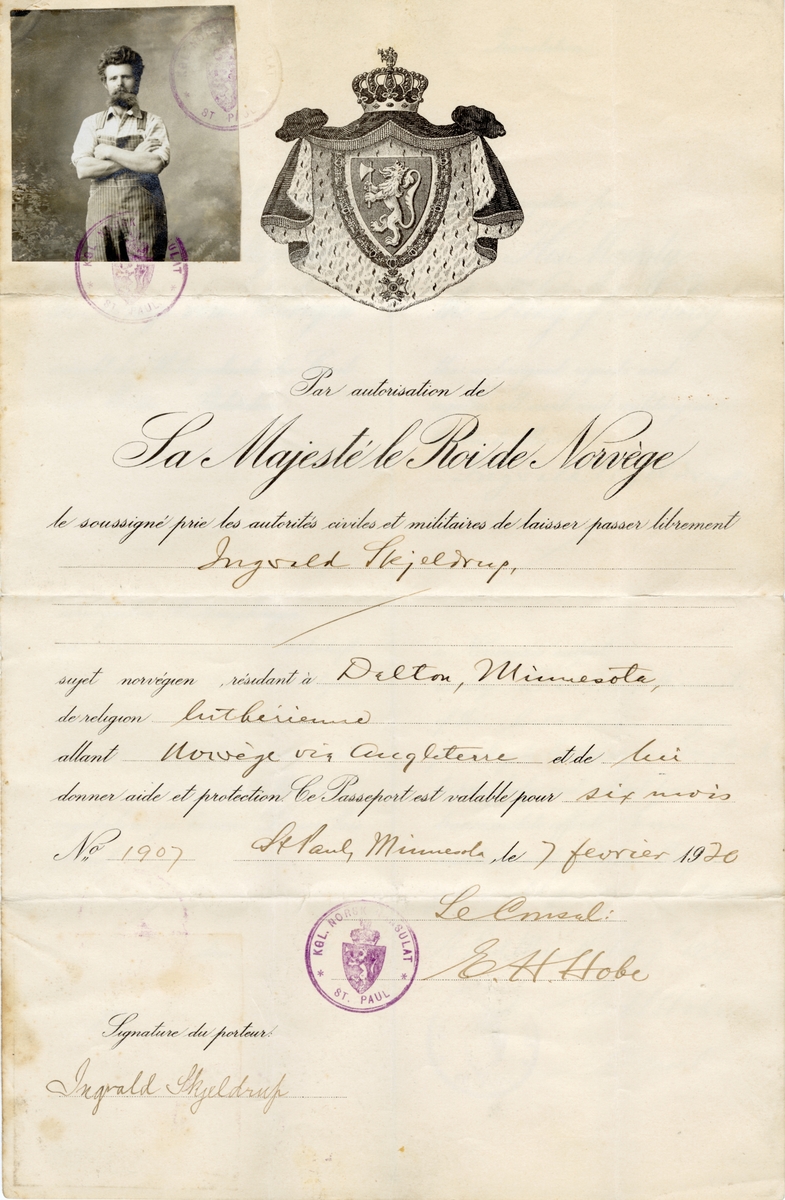 ST. PAUL
KGL. NOR ULAT
ST. PAUL
Par autorisation de
Sa Majesté le Roi de Norvège
le soussigné prie les autorités civiles et militaires de laisser passer librement
Ingvald Skjeldrup,
sujet norvégien , résidant à Dalton, Minnesota,
de religion luthérienne
allant Norvège via Angleterre et de lui
donner aide et protection. Ce Passeport est valable pour six mois
No 1907 St Paul, Minnesota, le 7 fevrier 1920
Le Consul:
KGL. NORSK SULAT
ST. PAUL
E. H. Hobe
Signature du porteur:
Ingvald Skjeldrup